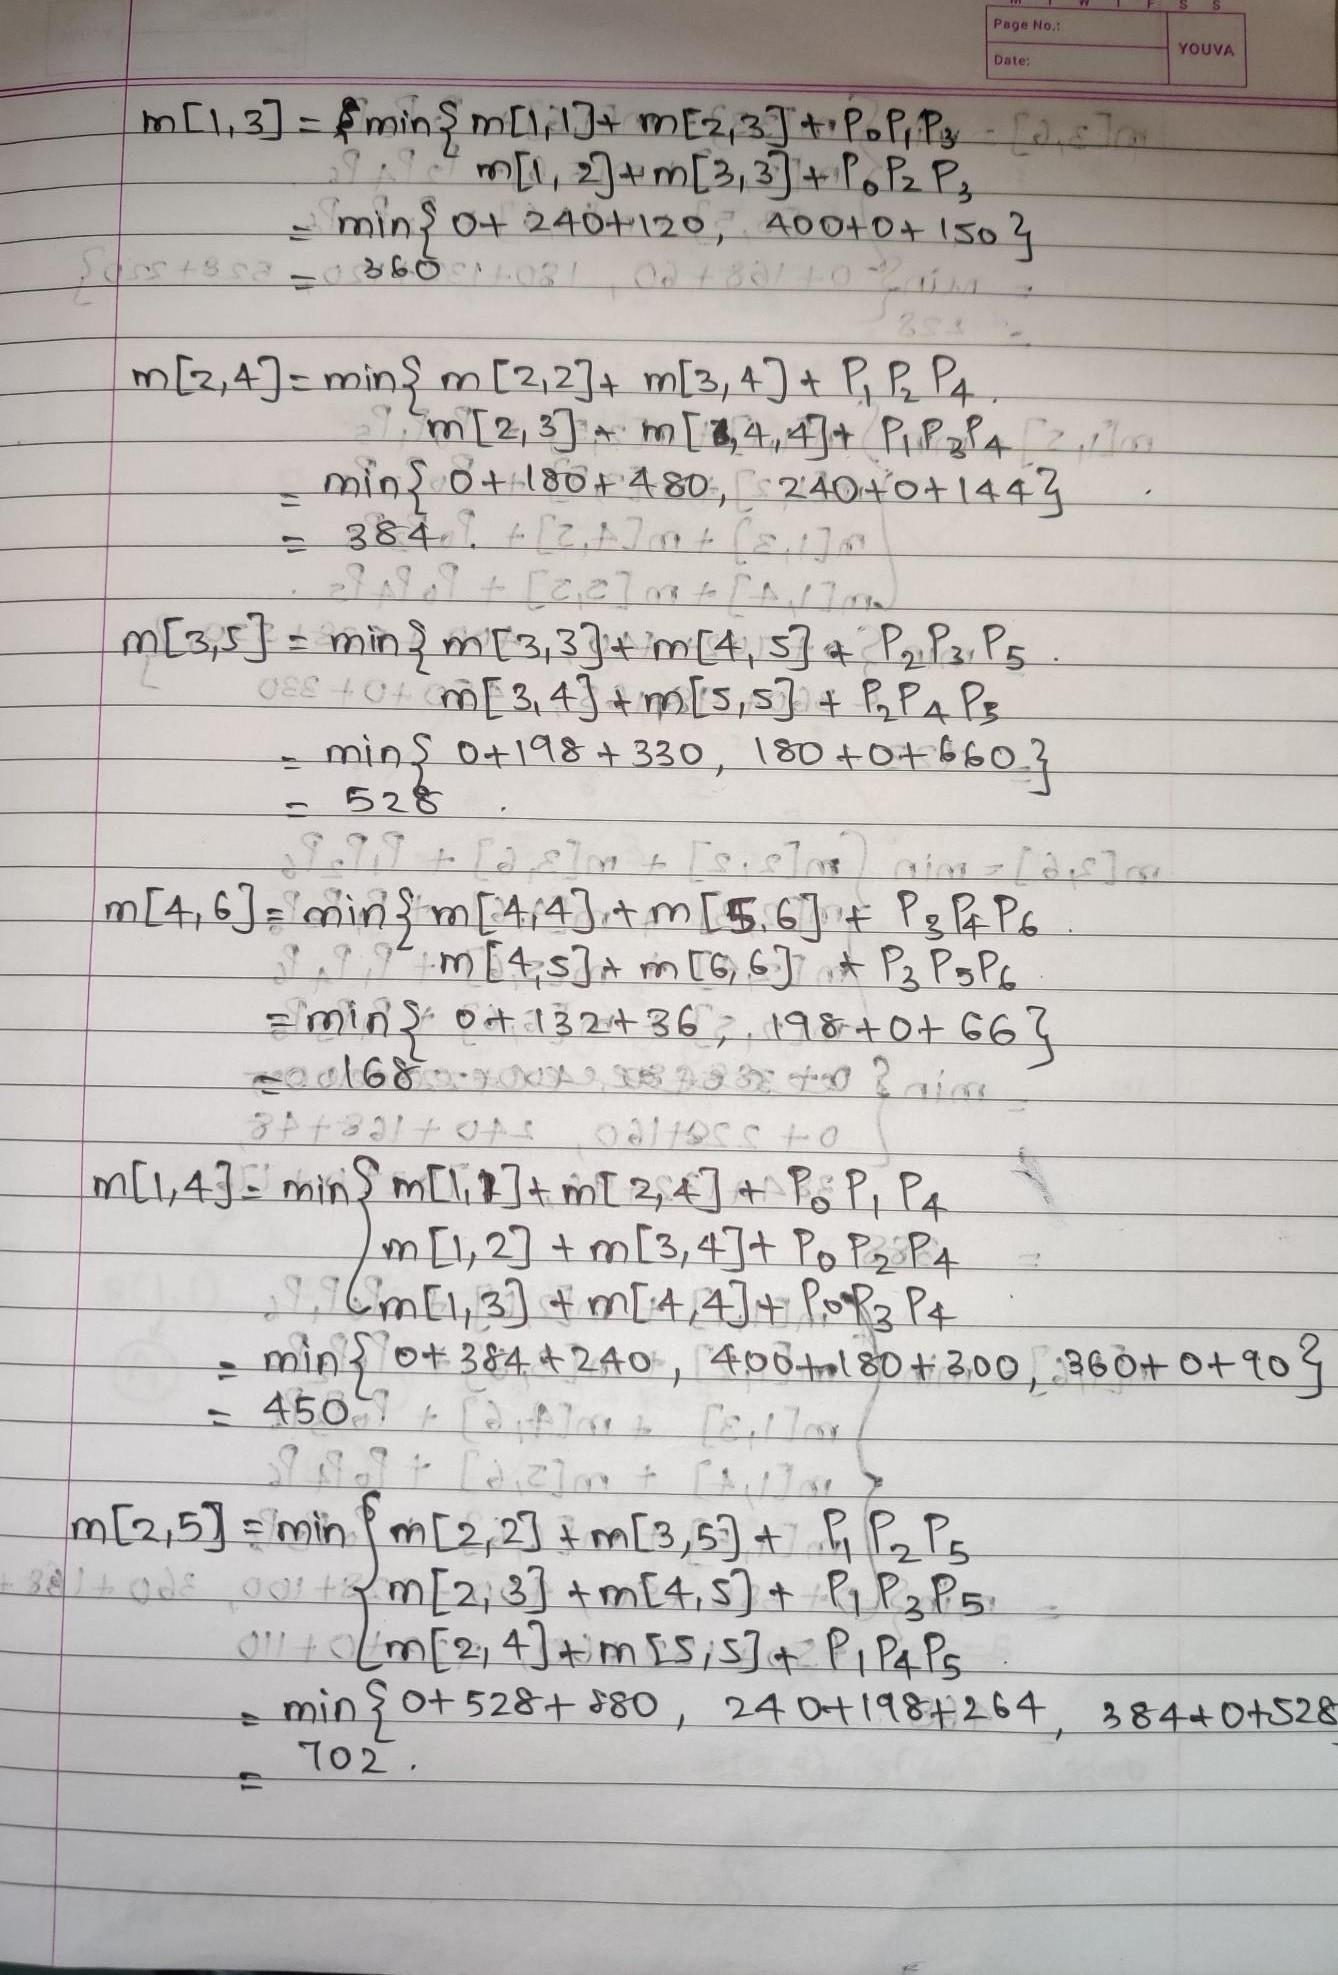 M T W T F S S
Page No.:
Date:
YOUVA
m[1,3] = min{ m[1,1]+ m[2,3]+ P₀P₁P₃
m[1,2]+m[3,3]+P₀P₂P₃
= min{ 0+ 240+120, 400+0+150}
= 360
m[2,4]= min{ m[2,2]+ m[3,4]+ P₁P₂P₄.
m[2,3]+ m[4,4]+ P₁P₃P₄
= min{ 0+180+480, 240+0+144}
= 384.
m[3,5] = min{ m[3,3]+ m[4,5]+ P₂P₃P₅.
m[3,4]+m[5,5]+P₂P₄P₅
= min{ 0+198+330, 180+0+660}
= 528.
m[4,6]= min{ m[4,4]+m[5,6]+ P₃P₄P₆.
m[4,5]+ m[6,6] + P₃P₅P₆
= min{ 0+132+36, 198+0+66}
= 168
m[1,4]= min{ m[1,1]+m[2,4]+ P₀P₁P₄
m[1,2] + m[3,4]+ P₀P₂P₄
m[1,3] + m[4,4]+ P₀P₃P₄
= min{ 0+384+240, 400+180+300, 360+0+90}
= 450
m[2,5] = min{ m[2,2]+m[3,5]+ P₁P₂P₅
m[2,3]+m[4,5]+ P₁P₃P₅
m[2,4]+m[5,5]+ P₁P₄P₅
= min{ 0+528+880, 240+198+264, 384+0+528
= 702.